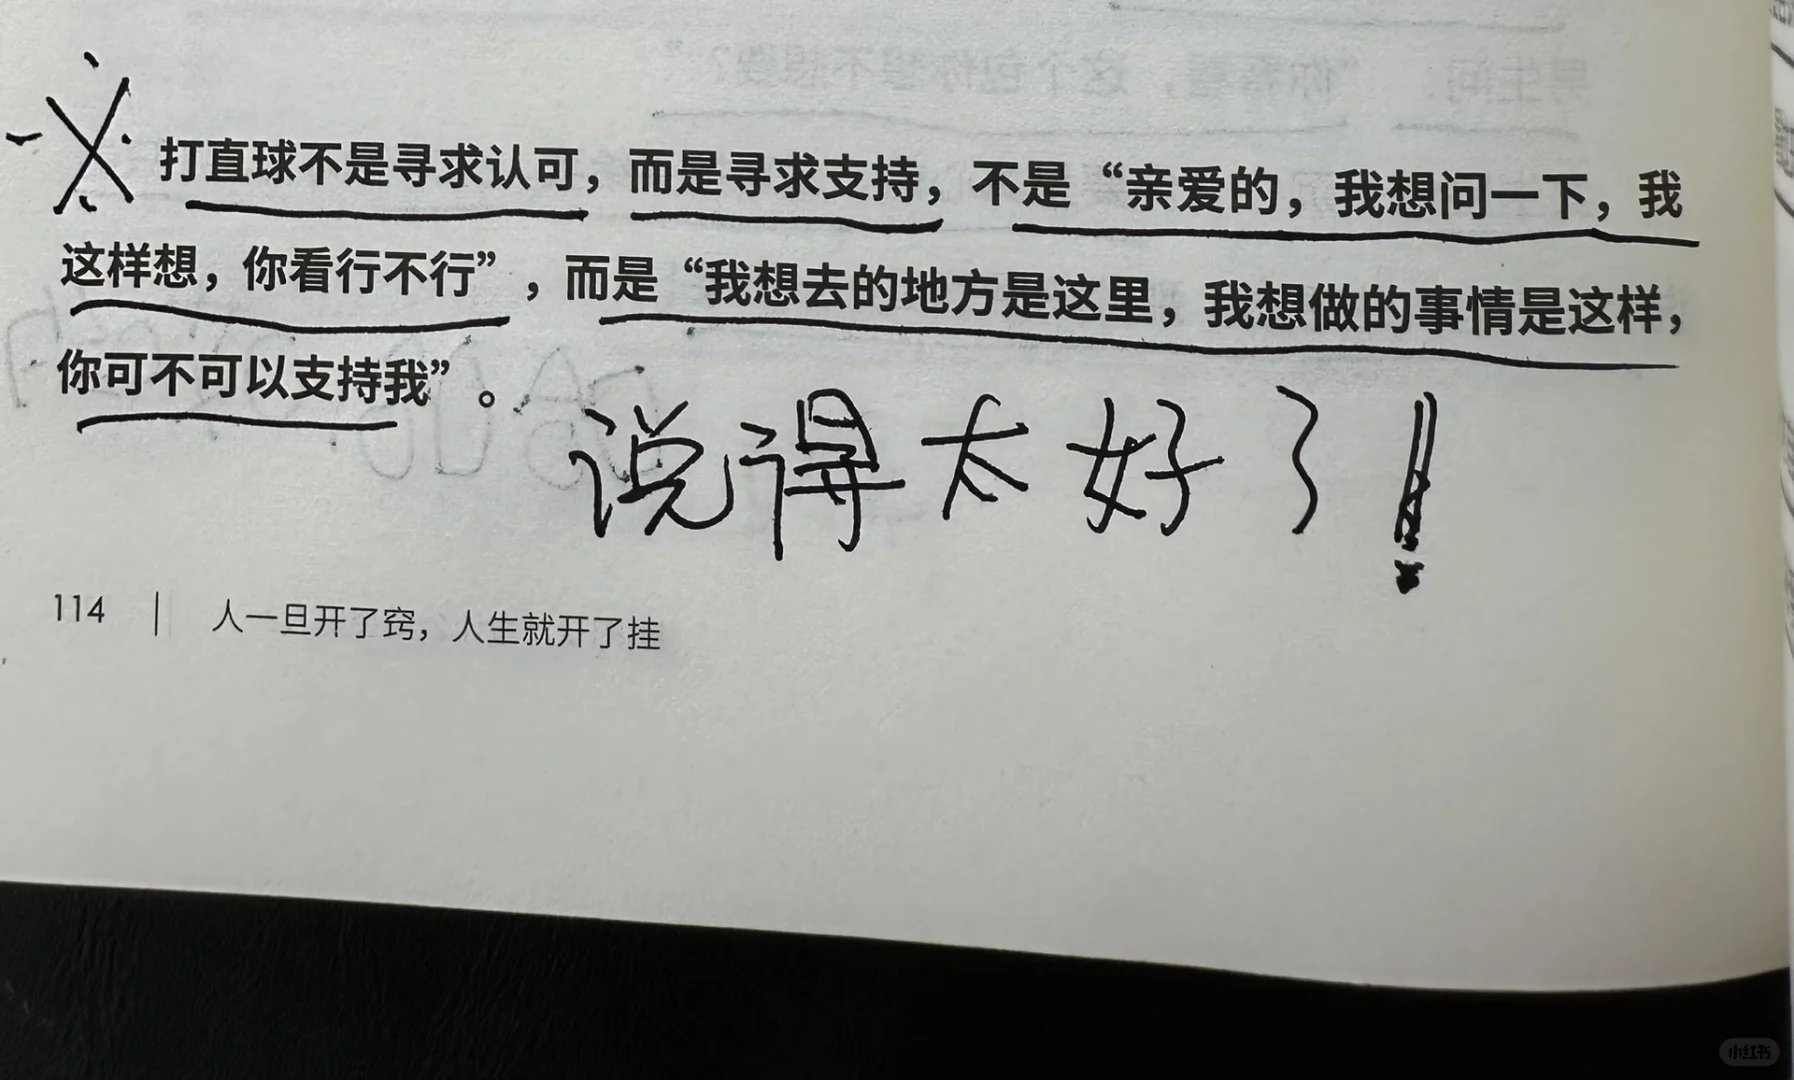 打直球不是寻求认可，而是寻求支持，不是“亲爱的，我想问一下，我
这样想，你看行不行”，而是“我想去的地方是这里，我想做的事情是这样，
你可不可以支持我”。
说得太好了！
114 | 人一旦开了窍，人生就开了挂
小红书